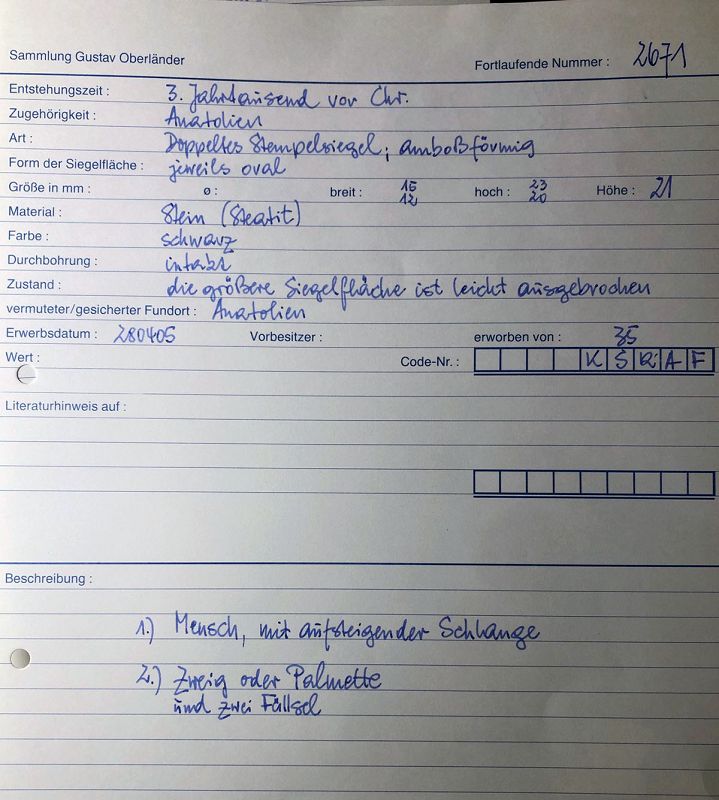 Sammlung Gustav Oberländer
Fortlaufende Nummer : 2671
Entstehungszeit : 3. Jahrtausend vor Chr.
Zugehörigkeit : Anatolien
Art : Doppeltes Stempelsiegel; amboßförmig
Form der Siegelfläche : jeweils oval
Größe in mm : ø : breit : 15 12 hoch : 23 20 Höhe : 21
Material : Stein (Steatit)
Farbe : schwarz
Durchbohrung : intakt
Zustand : die größere Siegelfläche ist leicht ausgebrochen
vermuteter/gesicherter Fundort : Anatolien
Erwerbsdatum : 280405 Vorbesitzer : erworben von : 35
Wert : Code-Nr. : K S R A F
Literaturhinweis auf :
Beschreibung :
1.) Mensch, mit aufsteigender Schlange
2.) Zweig oder Palmette
und zwei Füllsel